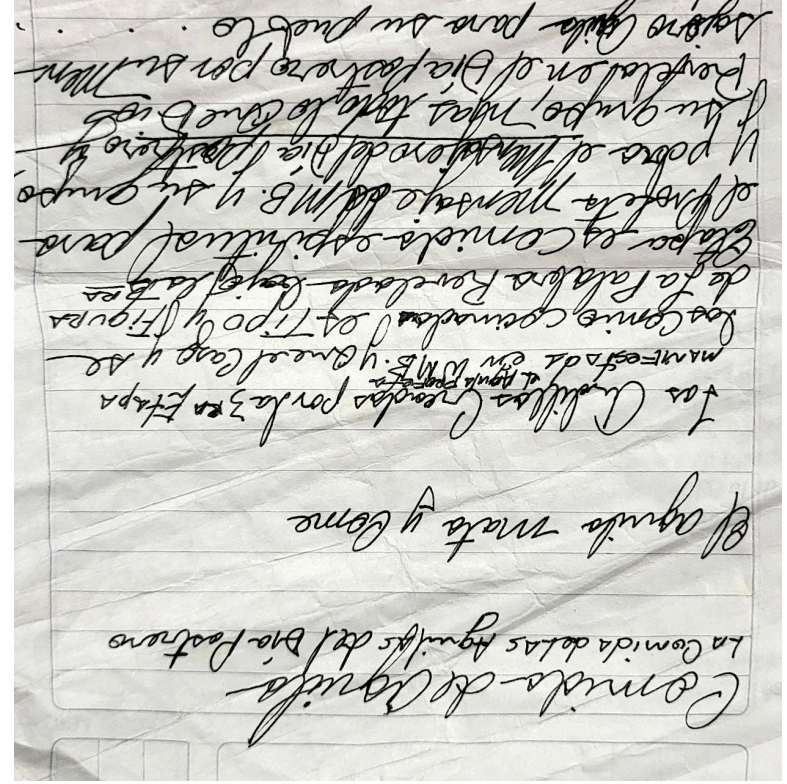 Comida de Aguila
La Comida de Las Aguilas del Día Postrero
El aguila mata y Come
Las Ardillas Creadas por la 3ra Etapa
el Aguila profeta
manifestada en WMB. y Que el Cazo y se
las Comio, cocinadas es Tipo y Figura
de La Palabra Revelada bajo la 3ra
Etapa es Comida espiritual para
el Profeta mensaje del MB. y su grupo,
y para el Mensajero del Día Postrero y
su grupo, mas todo lo que Dios
Revela en el Día Postrero por su Men-
sajero Aguila para su pueblo . . . .